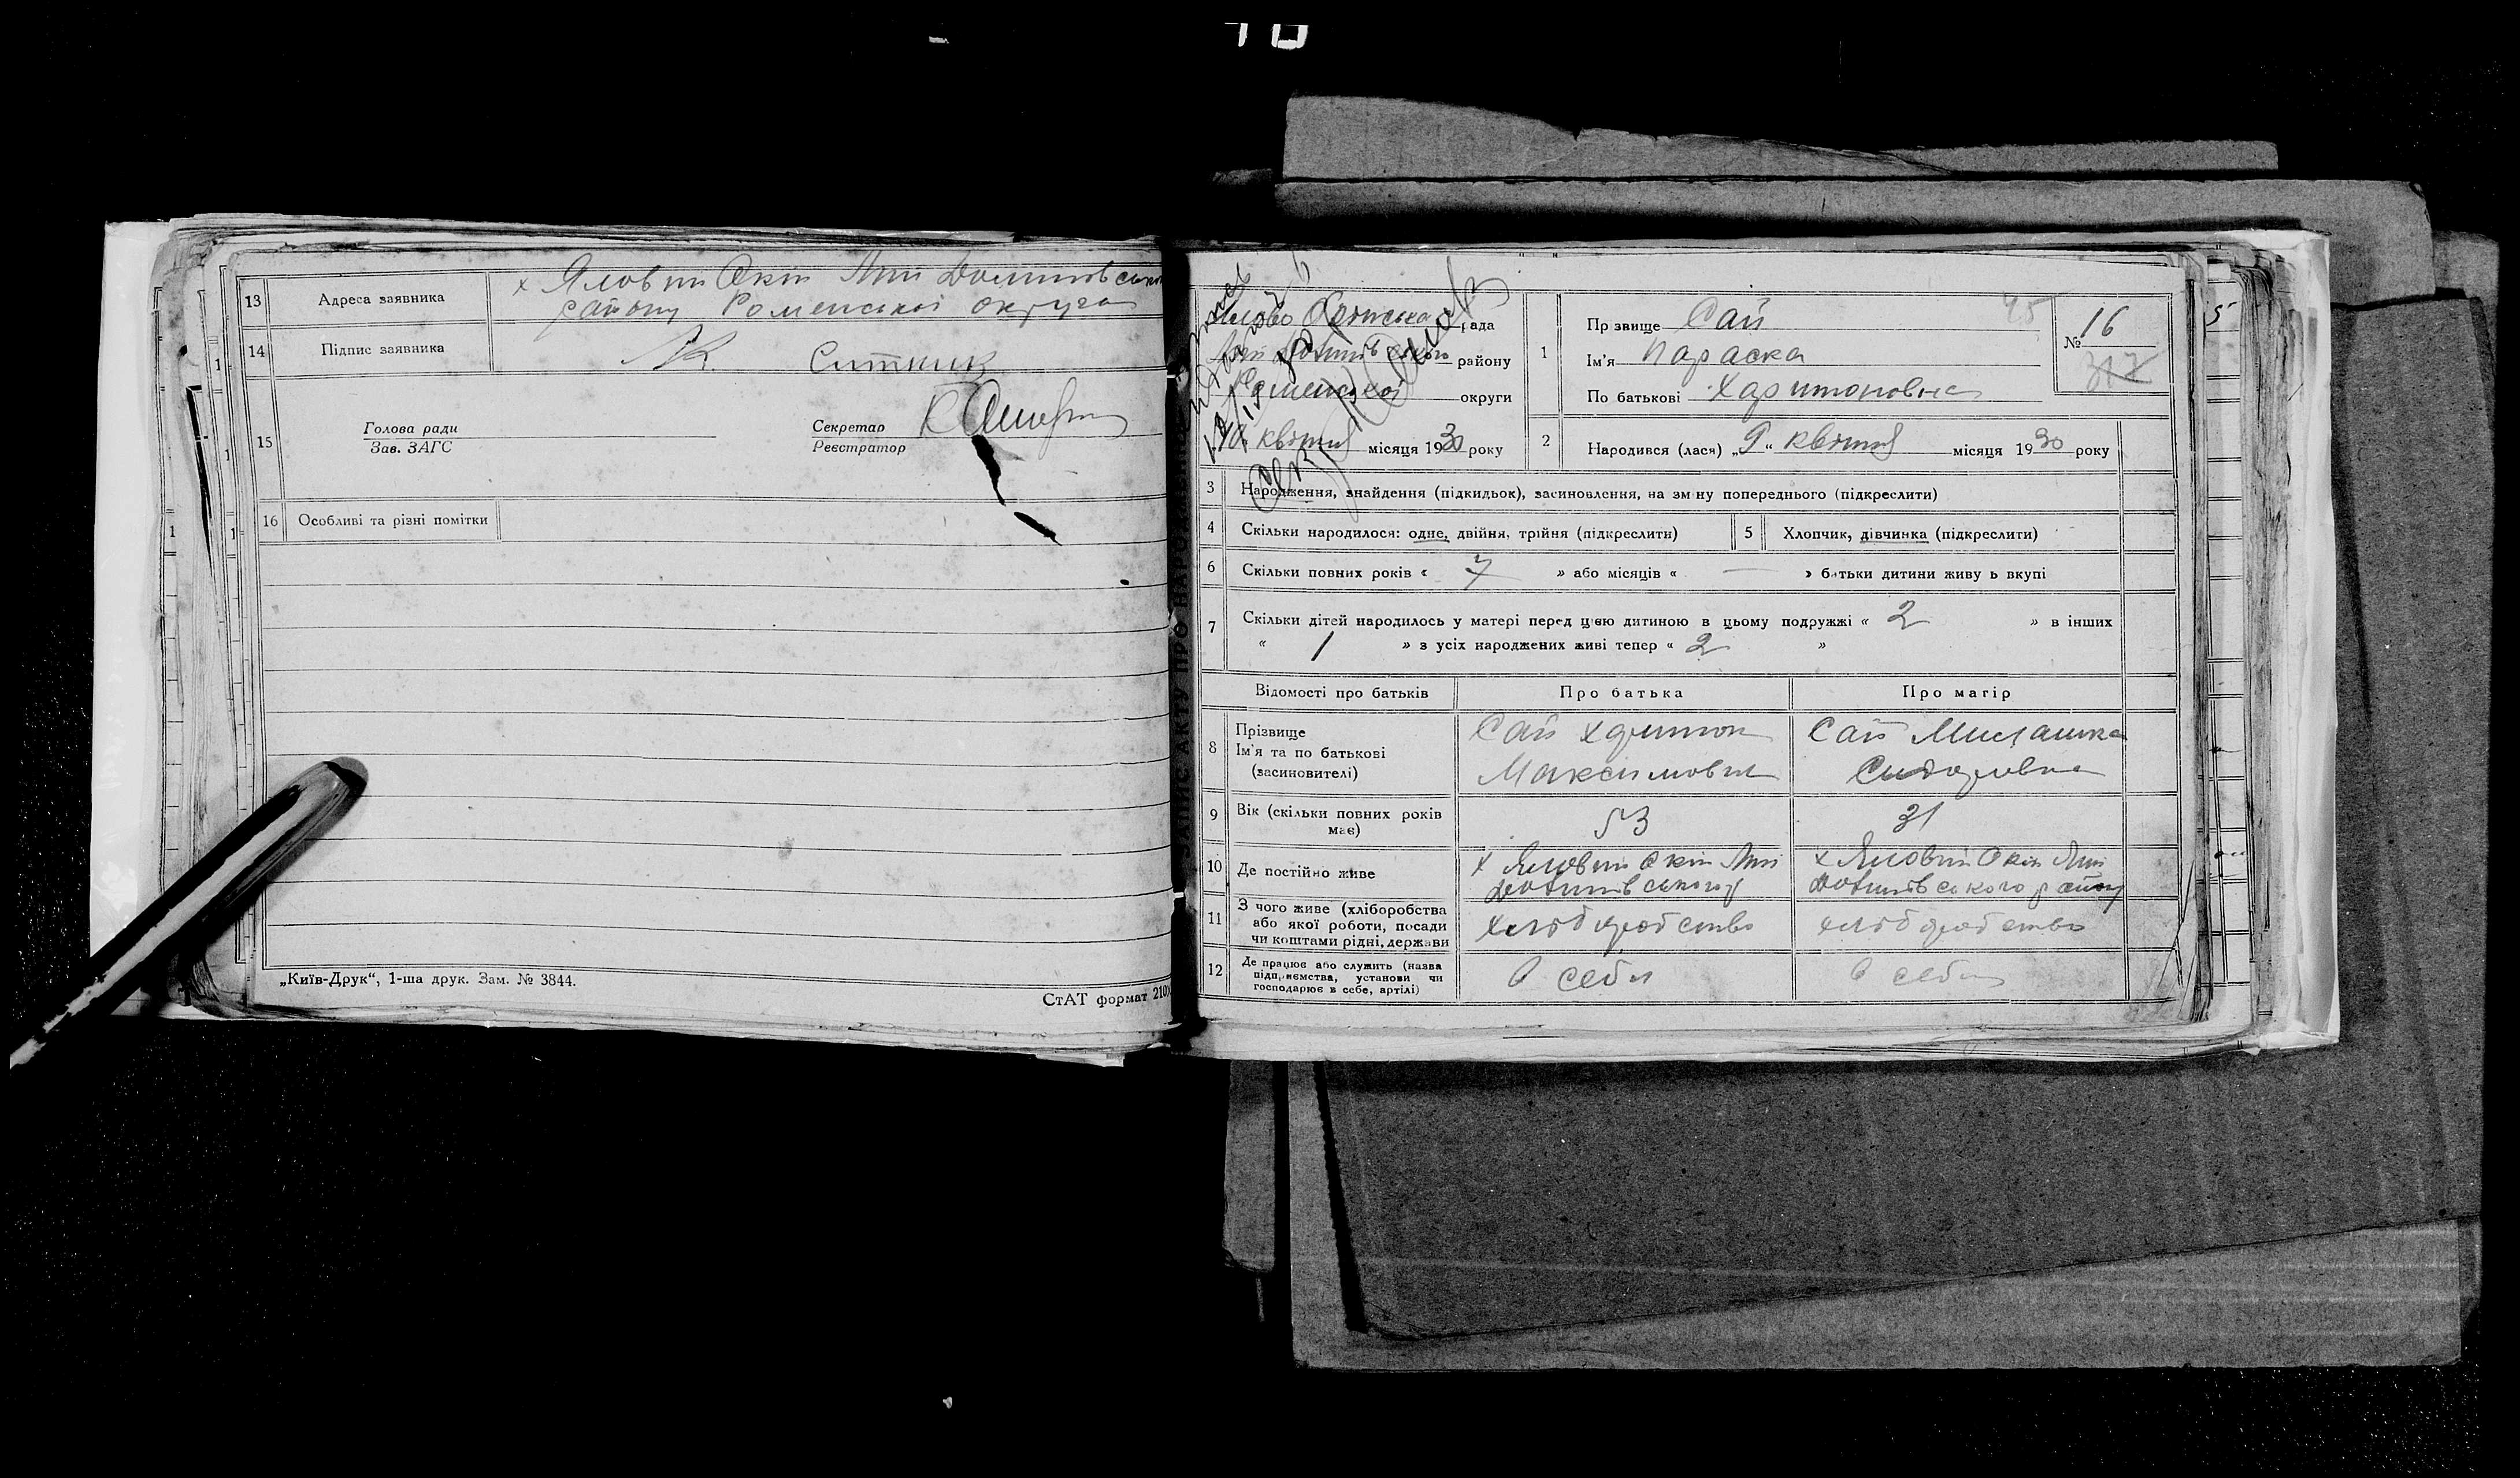 13 Адреса заявника х Яловий Окіп Лип Долинівського
району Роменської округи
14 Підпис заявника Ситник
15 Голова ради
Зав. ЗАГС
Секретар
Реєстратор
16 Особливі та різні помітки
„Київ-Друк“, 1-ша друк. Зам. № 3844.
СтАТ формат 210
рада
району
Роменської округи
10 квітня місяця 1930 року
1 Прізвище Сай
Ім'я Параска
По батькові Харитоновна
95
№ 16
317
2 Народився (лася) „9“ квітня місяця 1930 року
3 Народження, знайдення (підкидьок), засиновлення, на зміну попереднього (підкреслити)
4 Скільки народилося: одне, двійня, трійня (підкреслити)
5 Хлопчик, дівчинка (підкреслити)
6 Скільки повних років « 7 » або місяців « — » батьки дитини живуть вкупі
7 Скільки дітей народилось у матері перед цією дитиною в цьому подружжі « 2 » в інших
« 1 » з усіх народжених живі тепер « 2 »
Відомості про батьків Про батька Про матір
8 Прізвище
Ім'я та по батькові
(засиновителі)
Сай Харитон
Максимович
Сай Милашка
Сидоровна
9 Вік (скільки повних років
має)
53
31
10 Де постійно живе
х Яловий Окіп Лип
Долинівського р
х Яловий Окіп Лип
Долинівського району
11 З чого живе (хліборобства
або якої роботи, посади
чи коштами рідні, держави
хліборобство
хліборобство
12 Де працює або служить (назва
підприємства, установи чи
господарює в себе, артілі)
в себе
в себе